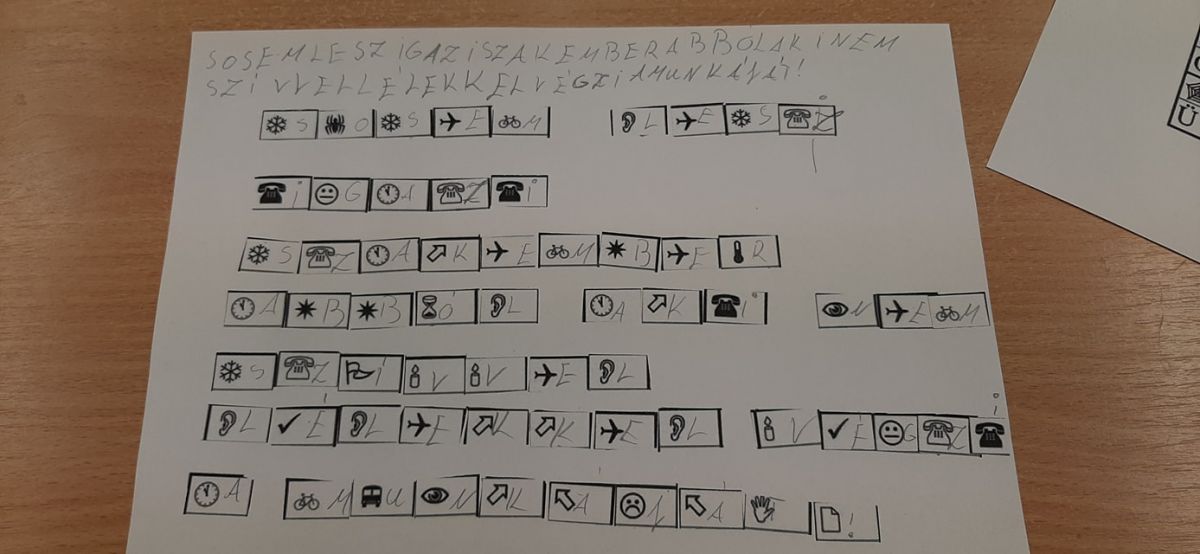 SOSEMLESZIGAZISZAKEMBERABBÓLAKINEM
SZÍVVELLÉLEKKELVÉGZIAMUNKÁJÁT!
S O S E M L E S Z
i G A Z i
S Z A K E M B E R
A B B Ó L A K i N E M
S Z Í V V E L
L É L E K K E L V É G Z i
A M U N K Á J Á !
Ü